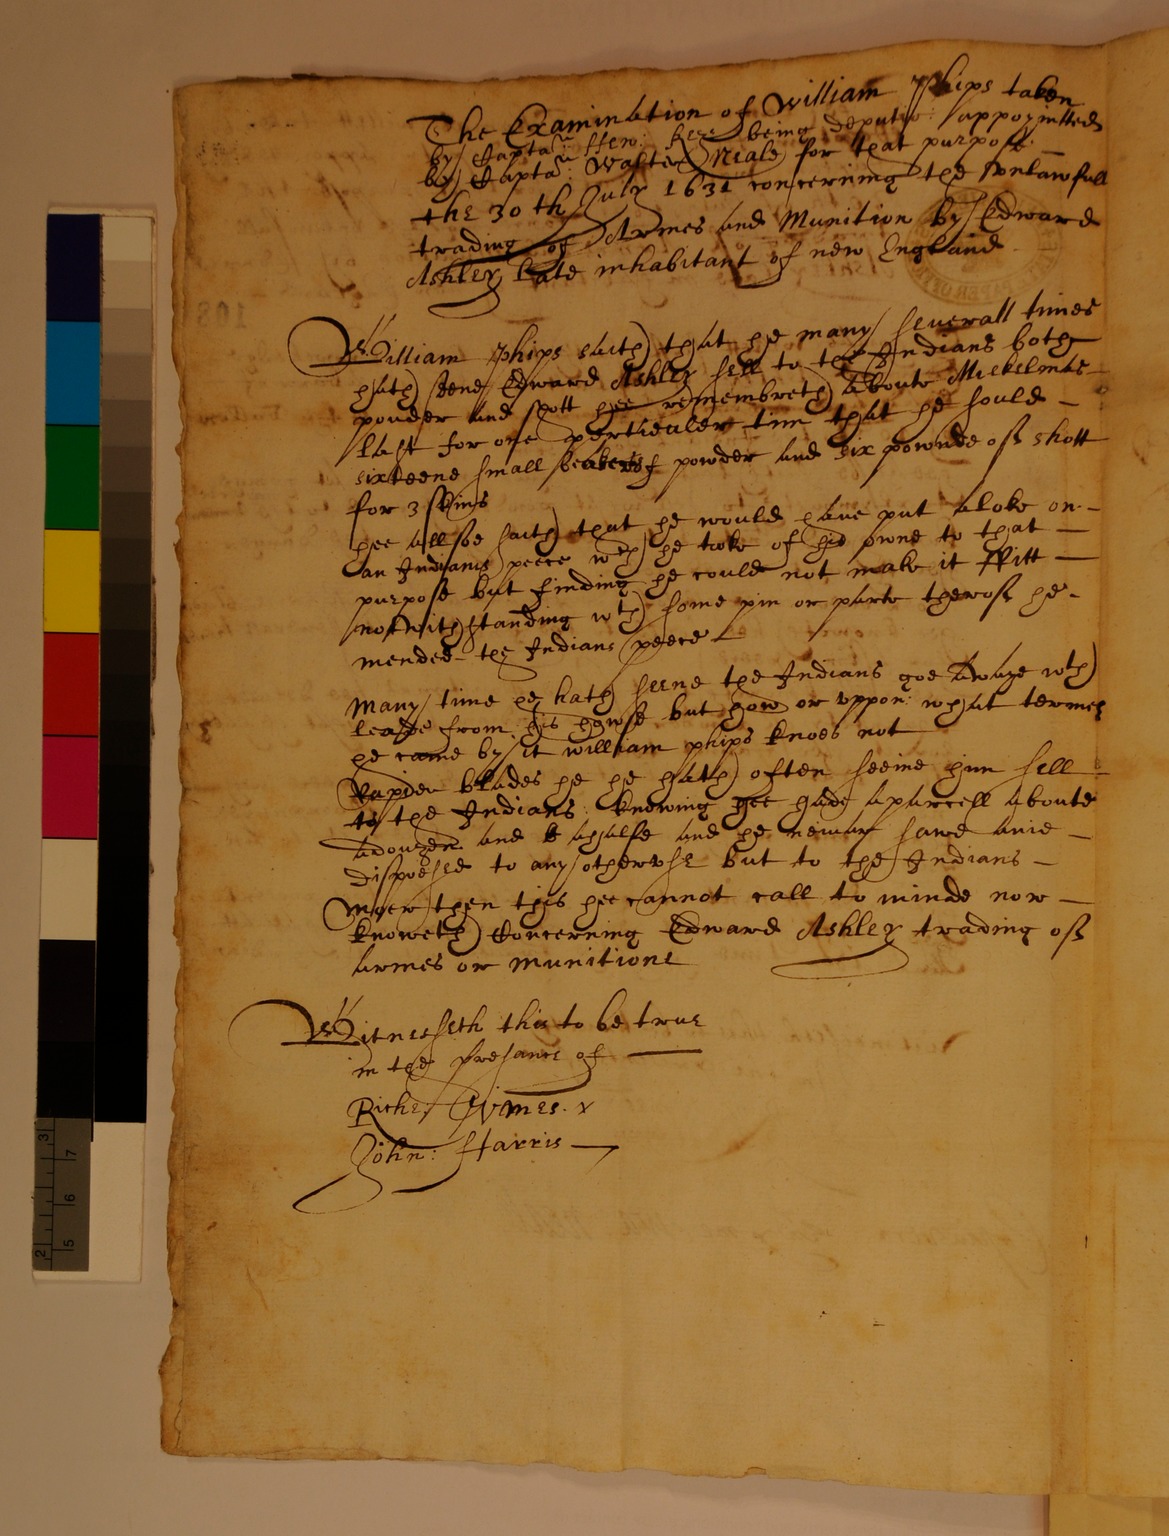 The Examination of William Phips taken
by Captan: Hen: Keys being deputie appoyntted
by Captan: Walter Neale for that purpose
the 30th July 1631 concerning the vnlawfull
trading of Armes and Munition by Edward
Ashley late inhabitant of new England
William Phips saith that he many seuerall times
hath seene Edward Ashley sell to the Indians both
pouder and shott hee remembreth aboute Mickelmas
last for one perticuler tim that he sould
sixteene small of powder and six pownde off shott
for 3 skins
hee allsoe saith that he would haue put a loke on
an Indians peece wch he toke of his owne to that
purpose but finding he could not make it ffitt
notwithstanding wth some pin or parte theroff he
mended the Indians peece
Many time he hath seene the Indians goe awaye wth
leade from his howse but how or vppon what termes
he came by it william phips knoes not
Rapier blades he he hath often seeine him sell
to the Indians knowing hee hade a parcell aboute
a douzen and a halfe and he neiuar sawe anie
dispoesed to any otherwise but to the Indians
Moer then this hee cannot call to minde nor
knoweth Concerning Edward Ashley trading off
armes or munitione
Witnesseth this to be true
in the presanc of
Riche:
John: Harris
2
3
5
6
7